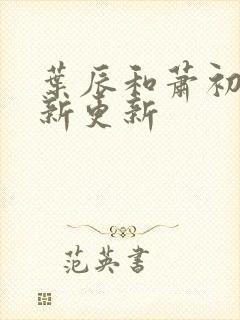 葉辰和蕭初
新更新
范英書